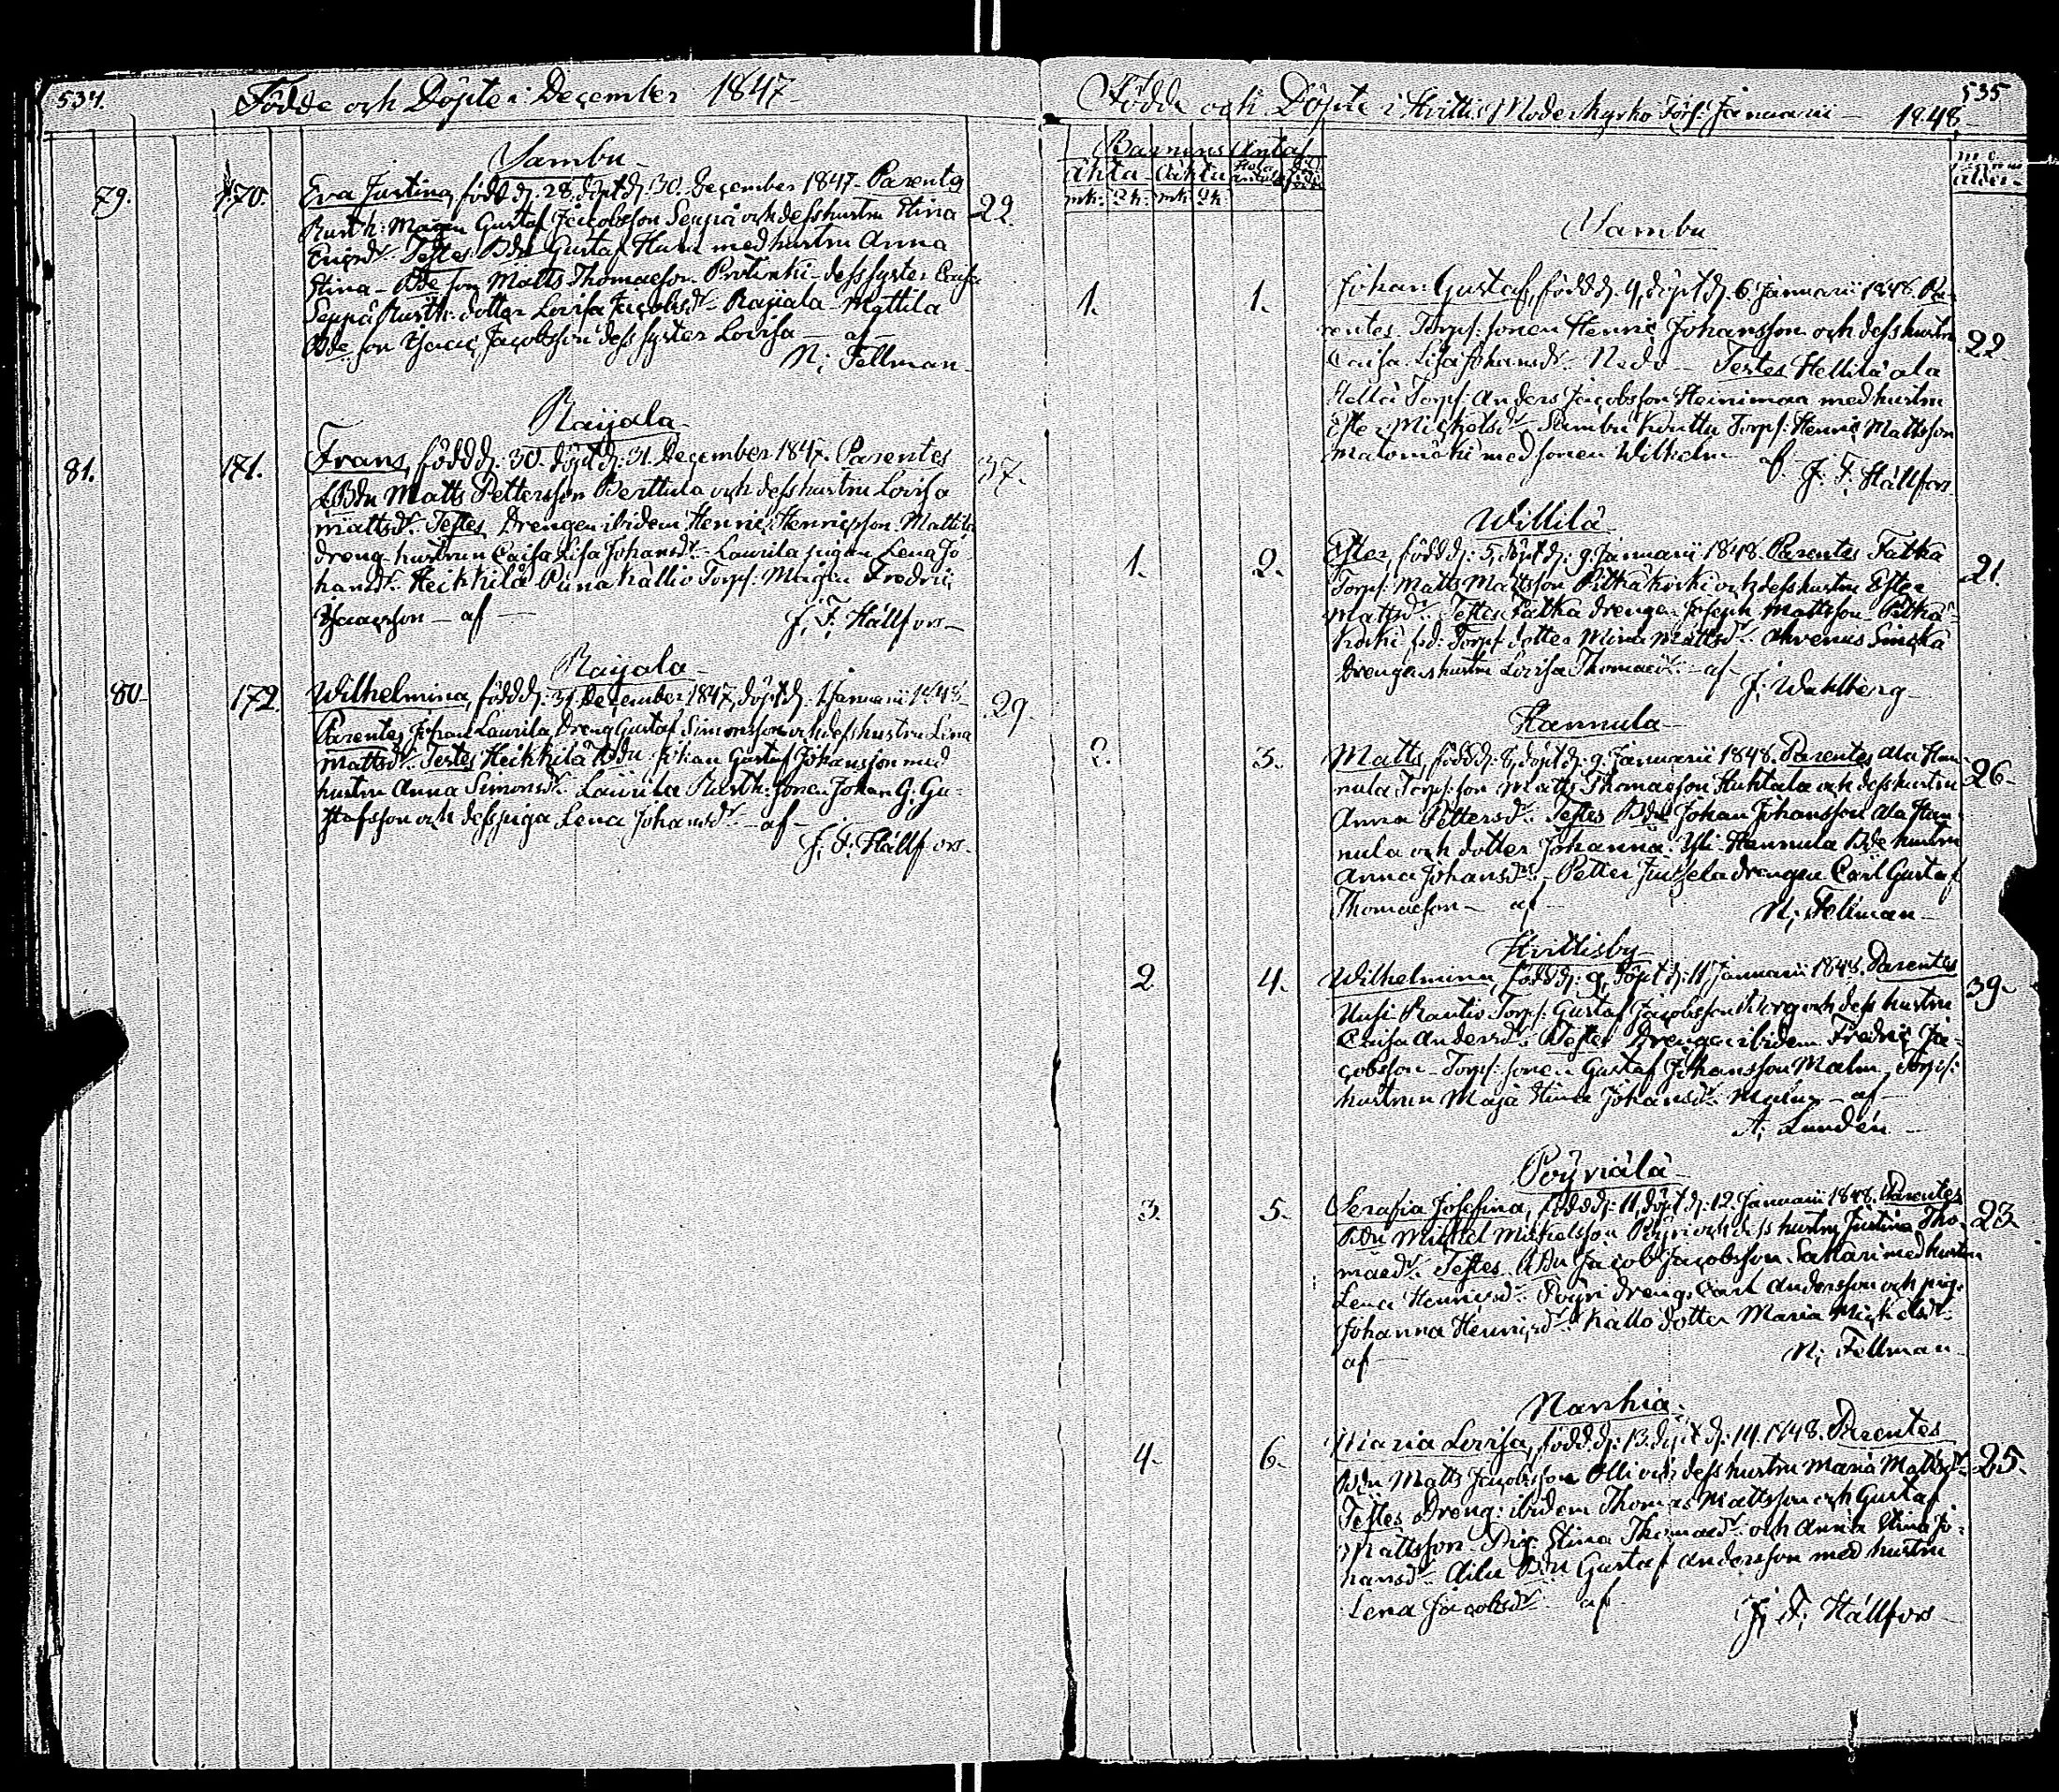 534.
Födde och Döpte i December 1847
Sambu
79. 170. Eva Justina, född d. 28. döpt d. 30. December 1847. Parentes 22.
Rusth: Mågen Gustaf Jacobsson Seppä och dess hustru Stina
Testes Bdn Gustaf med hustru Anna
Stina - Bde son Matts Thomasson dess syster Caisa
Seppä Rusth: dotter Lovisa Jacobsdr. Raijala Mattila
Bde son Isaac Jacobsson dess syster Lovisa - af
N; Fellman
Raijala
81. 171. Frans, född d. 30. döpt d. 31. December 1847. Parentes 37.
Bdn Matts Pettersson Berttula och dess hustru Lovisa
Mattsdr. Testes Drengen ibidem Henric Henricsson - Mattila
dreng hustrun Caisa Lisa Johansdr. Laurila pigan Lena Jo
hansdr. Heikkilä Punakallio Torp: Mågen Fredric
Isaacsson - af
J; F; Hällfors
Raijala
80 172. Wilhelmina, född d. 31 December 1847, döpt d. 1 Januarii 1848 29.
Parentes Johan Laurila Dreng Gustaf Simonsson och dess hustru Lena
Mattsdr. Testes Heikkilä Bdn Johan Gustaf Johansson med
hustru Anna Simonsdr. Laurila Rusth: sonen Johan G. Gu-
stafsson och dess piga Lena Johansdr. - af
J; F; Hällfors
535
Födde och Döpte i Hvittis Moderkyrko Förs: Januarii 1848
Barnens Antal
Äkta Oäkta
mk. qk. mk. qk.
Sambu
1. 1. Johan Gustaf, född d. 4, döpt d. 6 Januarii 1848. Pa-
rentes Torp: sonen Henric Johansson och dess hustru 22
Caisa Lisa Johansdr. Testes Hellilä ala
Hellä Torp: Anders Jacobsson Heinimaa med hustru
Ester Mickelsdr. Sambu Torp: Henric Mattsson
Matomäki med sonen Wilhelm af
J; F; Hällfors
Willilä
1. 2. Ester, född d: 5, döpt d: 9. Januarii 1848. Parentes Fatka 21.
Torp: Matts Mattsson Pitkäkoski och dess hustru Ester
Mattsdr. Testes Fatka drengen Joseph Mattsson Pitkä-
koski Torp: dotter Mina Mattsdr.
Drengens hustru Lovisa Thomasdr. - af
J; Wahlberg
Hannula
2. 3. Matts, född d. 8, döpt d. 9. Januarii 1848. Parentes Ala Han-
nula Torp: son Matts Thomasson Huhtala och dess hustru 26
Anna Pettersdr. Testes Bdn Johan Johansson Ala Han-
nula och dotter Johanna. Yli Hannula Bde hustru
Anna Johansdr. - Petter drengen Carl Gustaf
Thomasson - af
N; Fellman
Hvittisby
2 4. Wilhelmina, född d: 9, döpt d: 11 Januarii 1848. Parentes 39
Uusi Rantio Torp: Gustaf Jacobsson och dess hustru
Caisa Andersdr. Testes Drengen ibidem Fredric Ja-
cobsson - Torp: sonen Gustaf Johansson Malm, Torp:
hustrun Maja Stina Johansdr. Malm - af
A; Lundén
Pöyriälä
3. 5. Serafia Josefina, född d: 11, döpt d: 12. Januarii 1848. Parentes 23
Bdn Michel Mickelsson Pöyri och dess hustru Justina Tho-
masdr. Testes Bdn Jacob Jacobsson Sakkari med hustru
Lena Henricsdr. Pöyri Dreng. Carl Andersson och pig.
Johanna Henricsdr. Kallo dotter Maria Mickelsdr.
af N; Fellman
Nanhia
4. 6. Maria Lovisa, född d: 13. döpt d: 14. 1848. Parentes
Bdn Matts Jacobsson Olli och dess hustru Maria Mattsdr. 25.
Testes Dreng: ibidem Thomas Mattsson och Gustaf
Mattsson. Pig: Stina Thomasdr. och Anna Stina Jo-
hansdr. Bdn Gustaf Andersson med hustru
Lena Jacobsdr. af
J; F; Hällfors